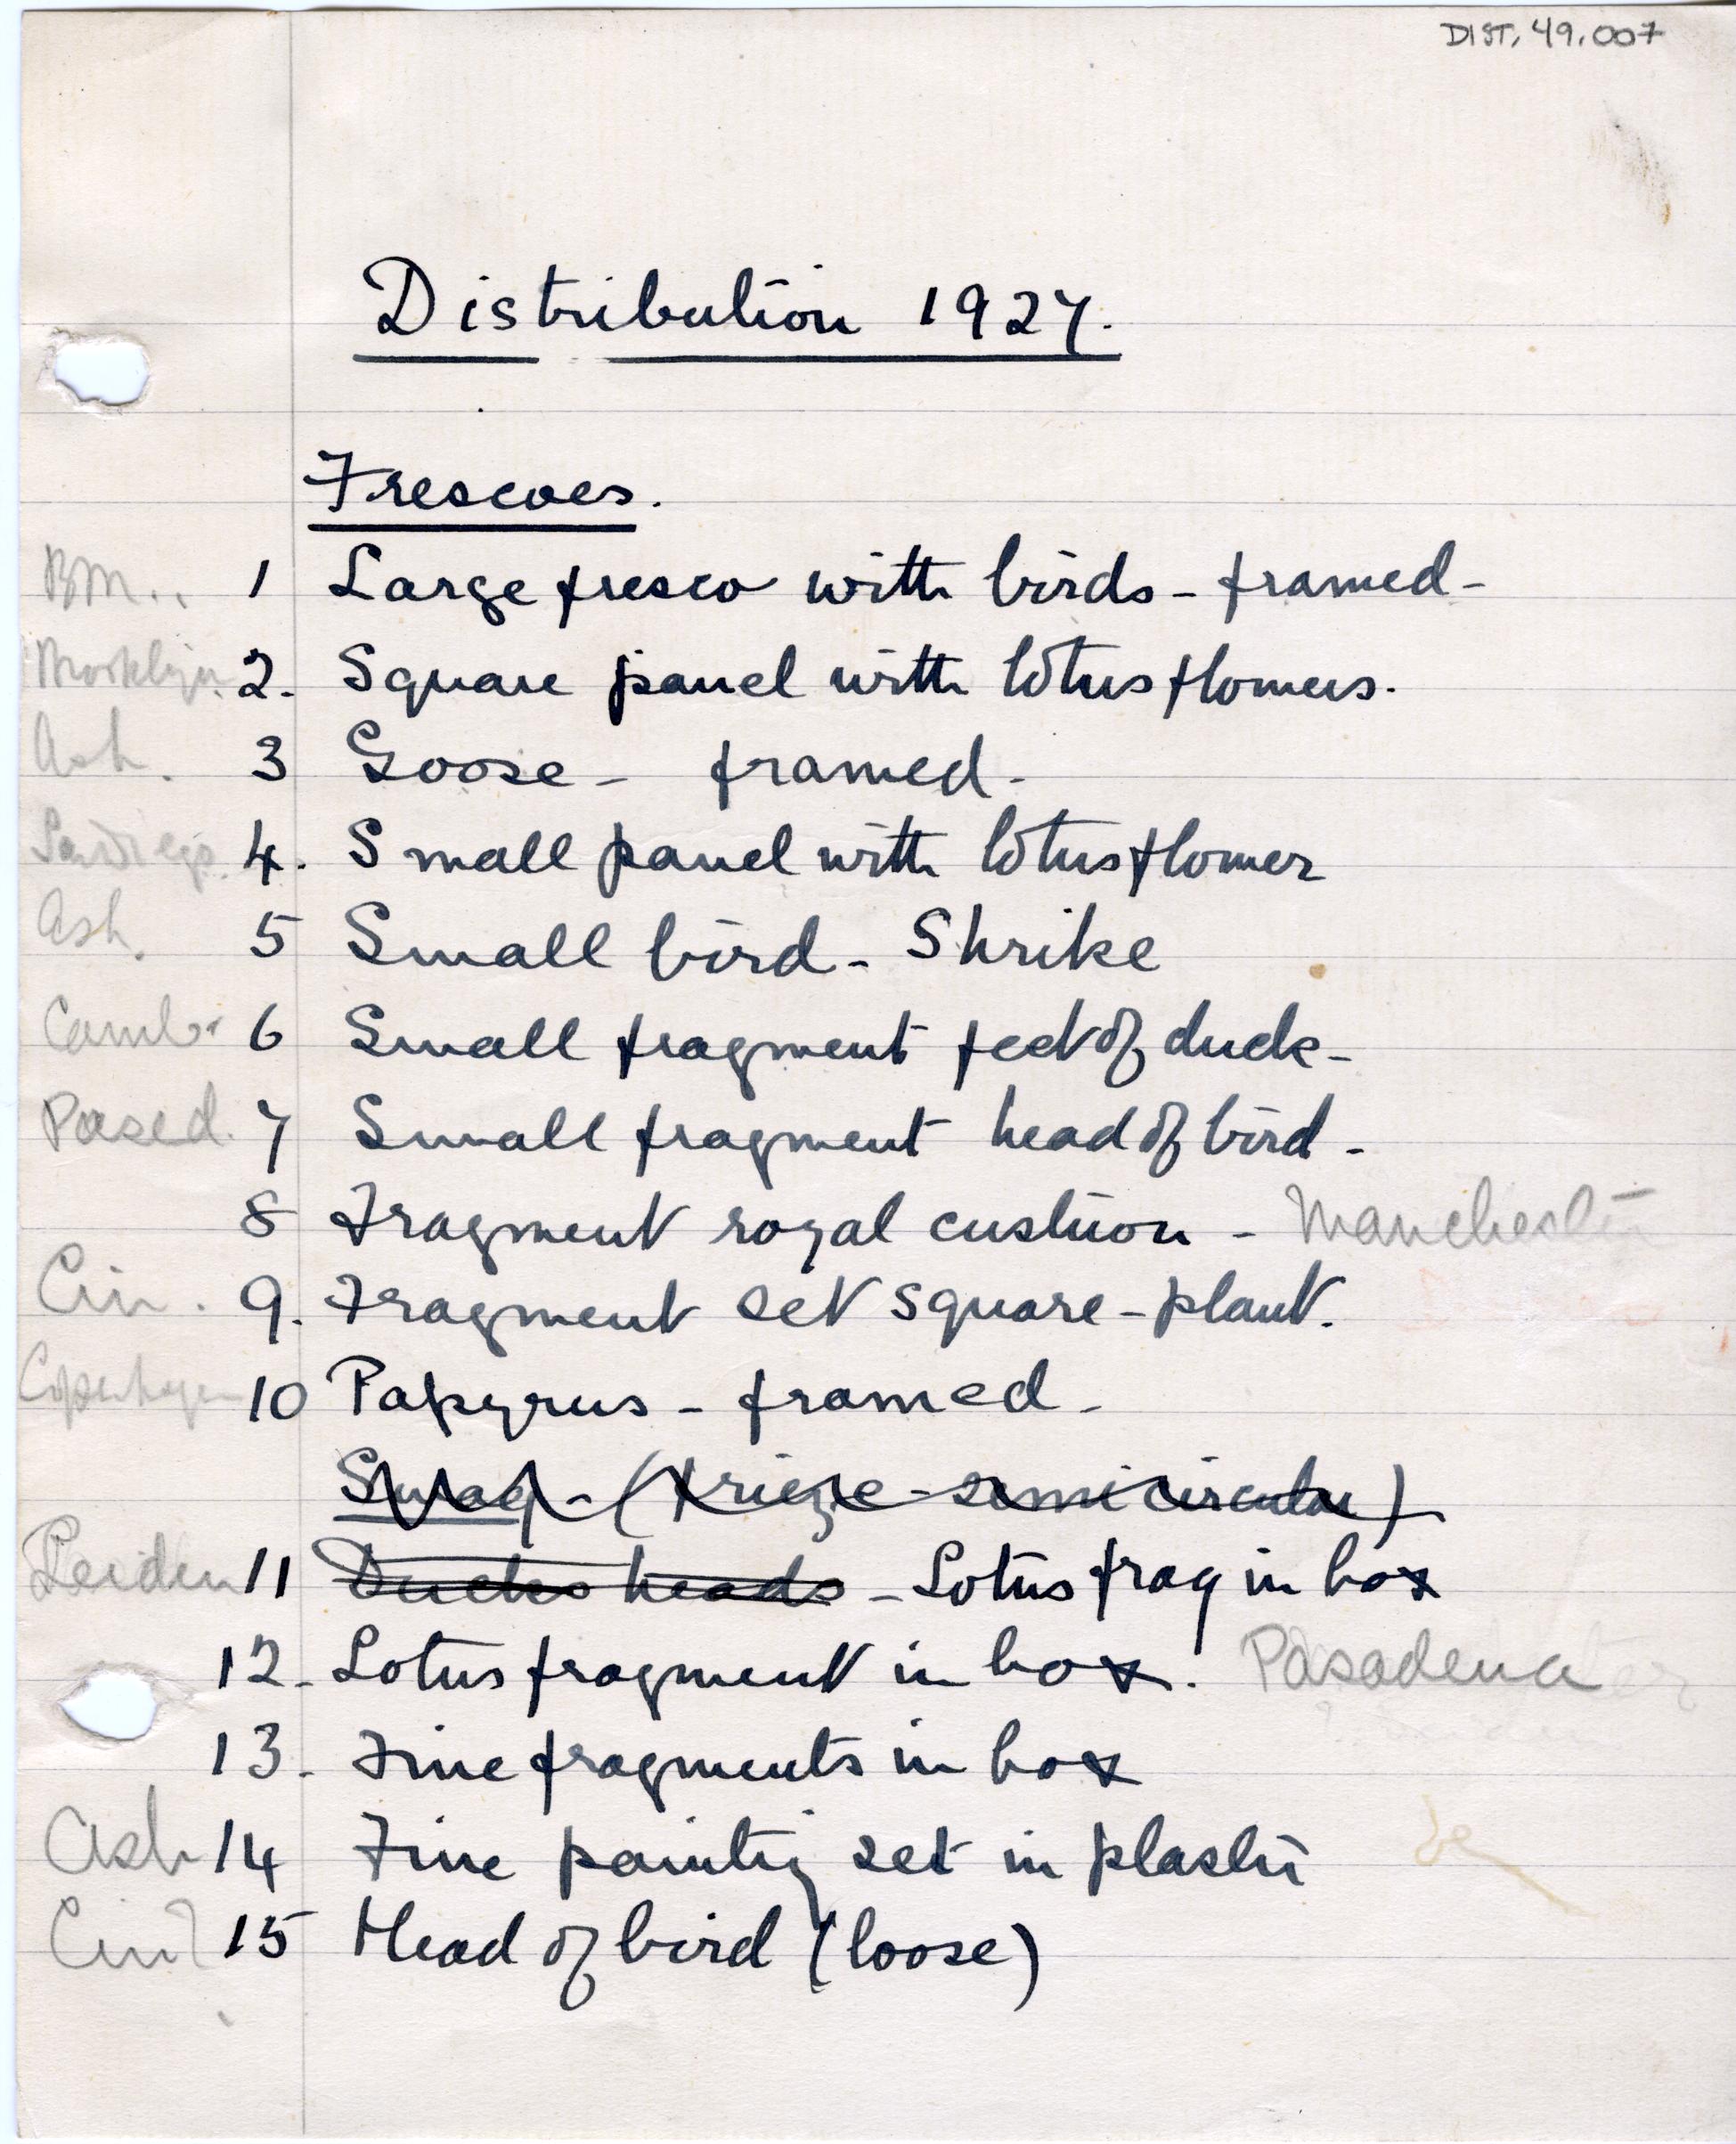 DIST. 49.007
Distribution 1927.
Frescoes.
BM.. 1 Large fresco with birds - framed -
Brooklyn. 2. Square panel with lotus flowers.
Ash. 3 Goose - framed -
San Diego. 4. Small panel with lotus flower
Ash. 5 Small bird - Shrike
Cambr 6 Small fragment feet of duck -
Pased. 7 Small fragment head of bird -
8 Fragment royal cushion - Manchester
Cin. 9. Fragment set square - plant.
Copenhagen 10 Papyrus - framed -
(frieze - semicircular)
Leiden 11 Ducks heads - Lotus frag in box
12. Lotus fragment in box. Pasadena
13. Fine fragments in box
Ash 14 Fine painting set in plaster
Cin? 15 Head of bird (loose)